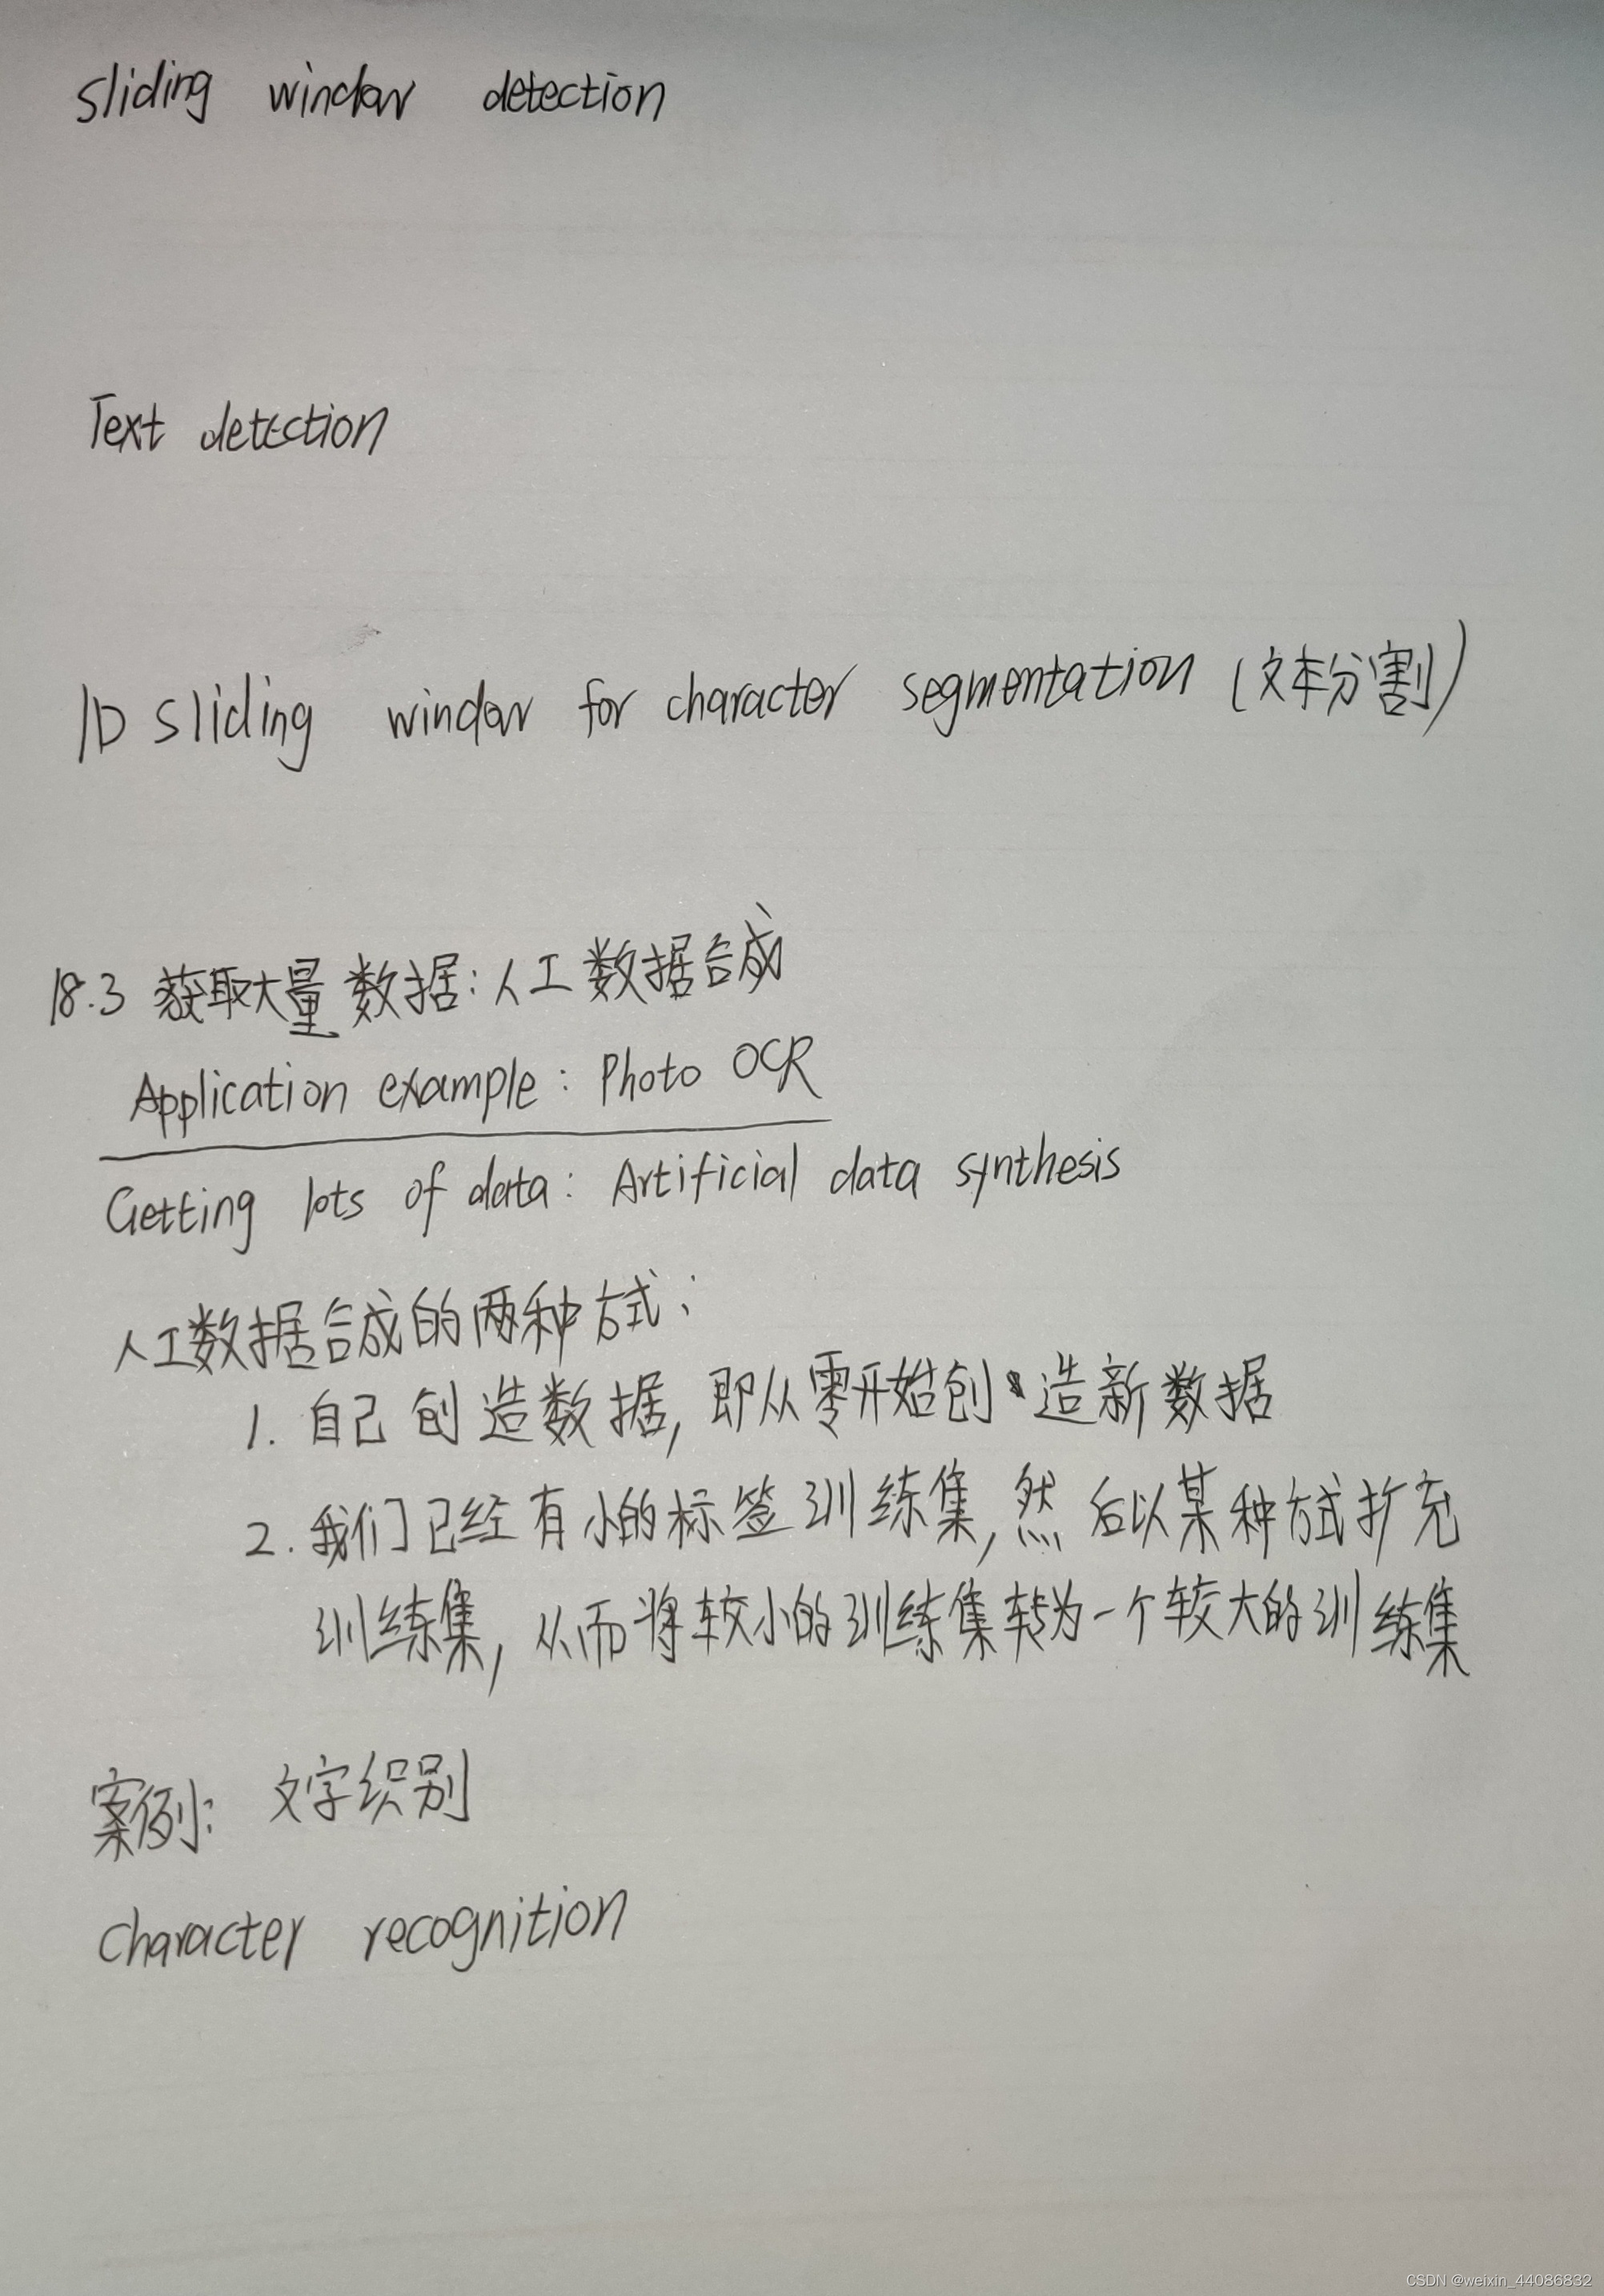 sliding window detection
Text detection
1D sliding window for character segmentation (文本分割)
18.3 获取大量数据:人工数据合成
Application example: Photo OCR
Getting lots of data: Artificial data synthesis
人工数据合成的两种方式:
1. 自己创造数据,即从零开始创造新数据
2. 我们已经有小的标签训练集,然后以某种方式扩充
训练集,从而将较小的训练集转为一个较大的训练集
案例: 文字识别
character recognition
CSDN @weixin_44086832